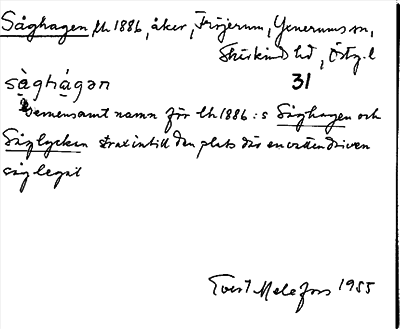 Såghagen lh 1886, åker, Fröjerum, Yxnerums sn,
Skärkinds hd, Östg.l
31
sàghágən
Gemensamt namn för lh 1886:s Såghagen och
Såglyckan strax intill den plats där en vattendriven
såg legat
Evert Melefors 1955